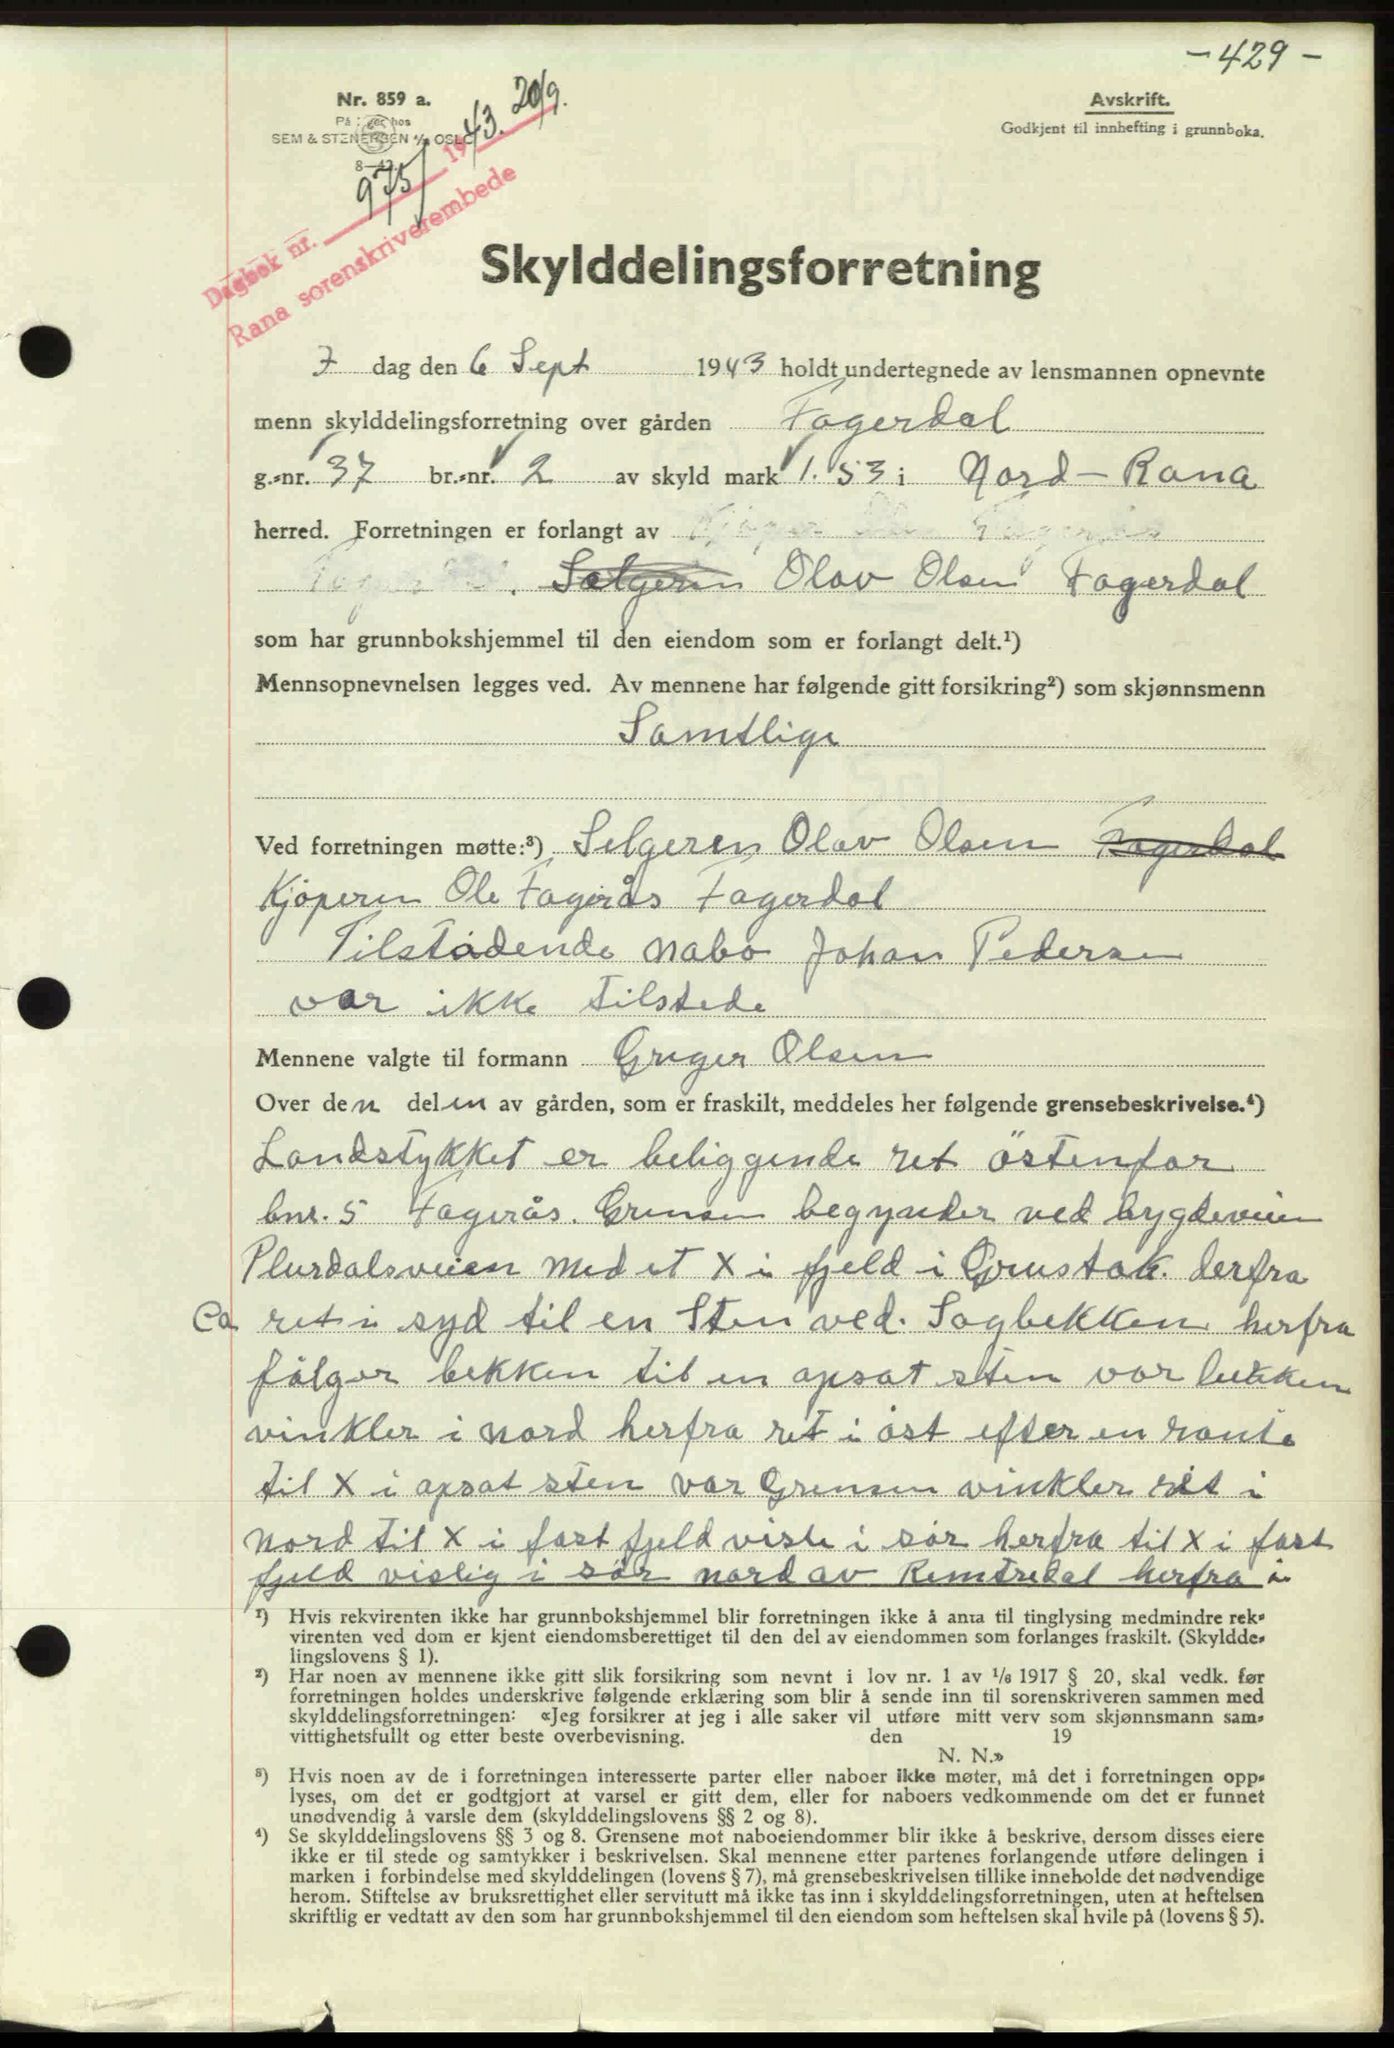 - 429 -
Nr. 859 a.
SEM & STENERSEN A/S OSLO
8-42.
Avskrift.
Godkjent til innhefting i grunnboka.
Dagbok nr. 975/1943. 20/9.
Rana sorenskriverembede
Skylddelingsforretning
I dag den 6 Sept 1943 holdt undertegnede av lensmannen opnevnte
menn skylddelingsforretning over gården Fagerdal
g.-nr. 37 br.-nr. 2 av skyld mark 1.53 i Nord-Rana
herred. Forretningen er forlangt av
Selgeren Olav Olsen Fagerdal
som har grunnbokshjemmel til den eiendom som er forlangt delt.¹)
Mennsopnevnelsen legges ved. Av mennene har følgende gitt forsikring²) som skjønnsmenn
Samtlige
Ved forretningen møtte:³) Selgeren Olav Olsen Fagerdal
Kjøperen Ole Fagerås Fagerdal
Tilstødende nabo Johan Pedersen
var ikke tilstede
Mennene valgte til formann Greger Olsen
Over den delen av gården, som er fraskilt, meddeles her følgende grensebeskrivelse.⁴)
Landstykket er beliggende ret östenfor
bnr. 5 Fagerås. Grensen begynder ved bygdeveien
Plurdalsveien med et X i fjeld i Grustak. derfra
Ca ret i syd til en Sten ved. Sagbekken herfra
følger bekken til en opsat sten vor bekken
vinkler i nord herfra ret i øst efter en
til X i opsat sten vor Grensen vinkler ret i
nord til X i fast fjeld i sør herfra til X i fast
fjeld vislig i sør nord av herfra i
¹) Hvis rekvirenten ikke har grunnbokshjemmel blir forretningen ikke å anta til tinglysing medmindre rek-
virenten ved dom er kjent eiendomsberettiget til den del av eiendommen som forlanges fraskilt. (Skyldde-
lingslovens § 1).
²) Har noen av mennene ikke gitt slik forsikring som nevnt i lov nr. 1 av 1/6 1917 § 20, skal vedk. før
forretningen holdes underskrive følgende erklæring som blir å sende inn til sorenskriveren sammen med
skylddelingsforretningen: «Jeg forsikrer at jeg i alle saker vil utføre mitt verv som skjønnsmann sam-
vittighetsfullt og etter beste overbevisning. den 19
N. N.»
³) Hvis noen av de i forretningen interesserte parter eller naboer ikke møter, må det i forretningen opp-
lyses, om det er godtgjort at varsel er gitt dem, eller for naboers vedkommende om det er funnet
unødvendig å varsle dem (skylddelingslovens §§ 2 og 8).
⁴) Se skylddelingslovens §§ 3 og 8. Grensene mot naboeiendommer blir ikke å beskrive, dersom disses eiere
ikke er til stede og samtykker i beskrivelsen. Skal mennene etter partenes forlangende utføre delingen i
marken i forbindelse med skylddelingen (lovens § 7), må grensebeskrivelsen tillike inneholde det nødvendige
herom. Stiftelse av bruksrettighet eller servitutt må ikke tas inn i skylddelingsforretningen, uten at heftelsen
skriftlig er vedtatt av den som har grunnbokshjemmel til den eiendom som heftelsen skal hvile på (lovens § 5).